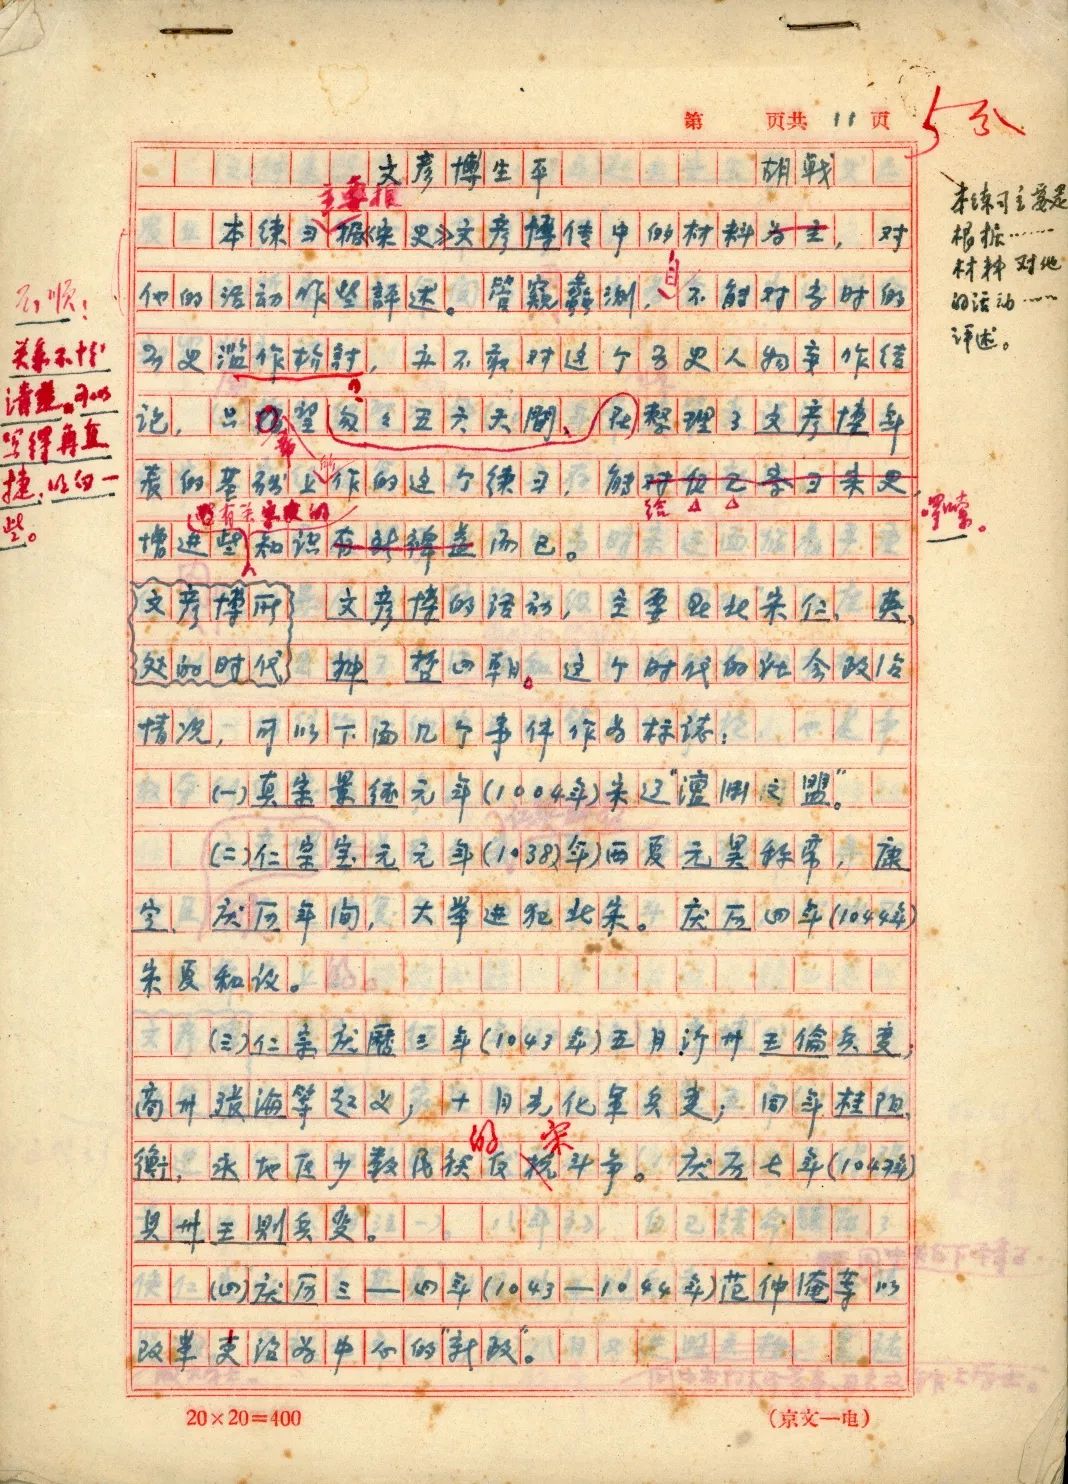 第 页共 11 页
5分
文彦博生平 胡戟
主要根
本练习据《宋史》文彦博传中的材料为主，对
他的活动作些评述。管窥蠡测，不能对当时的
自
历史滥作检讨，亦不敢对这个历史人物妄作结
论，只希望匆匆五六天间、在整理了文彦博年
表的基础上作的这个练习，能对自己学习宋史
的
给
有关宋史的
增进些知识有所裨益而已。
文彦博所
处的时代
文彦博的活动，主要在北宋仁、英、
神、哲四朝。这个时代的社会政治
情况，可以下面几个事件作为标志：
(一)真宗景德元年(1004年)宋辽"澶渊之盟"。
(二)仁宗宝元元年(1038年)西夏元昊称帝，康
定、庆历年间，大举进犯北宋。庆历四年(1044年)
宋夏和议。
(三)仁宗庆曆三年(1043年)五月沂州王倫兵变；
商州张海等起义；十月光化军兵变；同年桂阳、
的 宋
衡、永地区少数民族反抗斗争。庆历七年(1047年)
贝州王则兵变。
(四)庆历三—四年(1043—1044年)范仲淹等以
改革吏治为中心的"新政"。
不顺：
关系不十分
清楚。可以
写得再直
捷、明白一
些。
本练习主要是
根据……
材料对他
的活动……
评述。
啰嗦。
20×20=400
(京文一电)